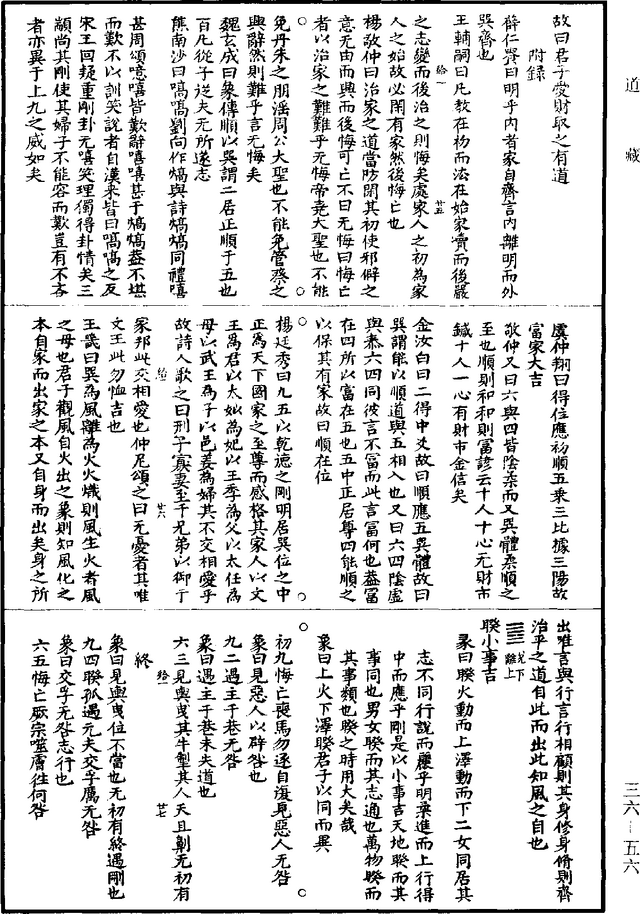 道藏
故曰君子愛財取之有道
附録
薛仁貴曰明乎内者家自齊言内離明而外
巽齊也
王輔嗣曰凡教在初而法在始家瀆而後嚴
之志變而後治之則悔矣處家人之初為家
人之始故必閑有家然後悔亡也
楊敬仲曰治家之道當防閑其初使邪僻之
意无由而興而後悔可亡不曰无悔曰悔亡
者以治家之難難乎无悔帝堯大聖也不能
免丹朱之朋淫周公大聖也不能免管蔡之
興辭然則難乎言无悔矣
魏玄成曰象傳順以巽謂二居正順于五也
百凡從子逆夫无所遂志
熊南沙曰嗃嗃劉向作熇與詩熇熇同禮嘻
甚周頌噫嘻皆歎辭嘻嘻甚于熇熇盖不堪
而歎不以訓笑說者自漢来皆曰嗃嗃之反
宋王回疑重剛卦无嘻笑理獨得卦情矣三
顒尚其剛使其婦子不能容而歎豈有不吝
者亦異于上九之威如矣
給一
廿五
虞仲翔曰得位應初順五乘三比據三陽故
富家大吉
敬仲又曰六與四皆陰柔而又巽體柔順之
至也順則和和則富諺云十人十心无財市
鍼十人一心有財市金信矣
金汝白曰二得中爻故曰順應五巽體故曰
巽謂能以順道與五相入也又曰六四陰虛
與泰六四同彼言不富而此言富何也蓋富
在四所以富在五也五中正居尊四能順之
以保其有家故曰順在位
楊廷秀曰九五以乾德之剛明居巽位之中
正為天下國家之至尊而感格其家人以文
王為君以太姒為妃以王季為父以太任為
母以武王為子以邑姜為婦其不交相愛乎
故詩人歌之曰刑于寡妻至于兄弟以御于
家邦此交相愛也仲尼頌之曰无憂者其唯
文王此勿恤吉也
王㡬曰巽為風離為火火熾則風生火者風
之母也君子觀風自火出之象則知風化之
本自家而出家之本又自身而出矣身之所
給一
廿六
出唯言與行言行相顧則其身修身脩則齊
治平之道自此而出此知風之自也
䷥兌下離上
睽小事吉
彖曰睽火動而上澤動而下二女同居其
志不同行說而麗乎明柔進而上行得
中而應乎剛是以小事吉天地睽而其
事同也男女睽而其志通也萬物睽而
其事類也睽之時用大矣哉
象曰上火下澤睽君子以同而異
初九悔亡喪馬勿逐自復見惡人无咎
象曰見惡人以辟咎也
九二遇主于巷无咎
象曰遇主于巷未失道也
六三見輿曳其牛掣其人天且劓无初有
終
象曰見輿曳位不當也无初有終遇剛也
九四睽孤遇元夫交孚厲无咎
象曰交孚无咎志行也
六五悔亡厥宗噬膚往何咎
給一
廿七
三六—五六